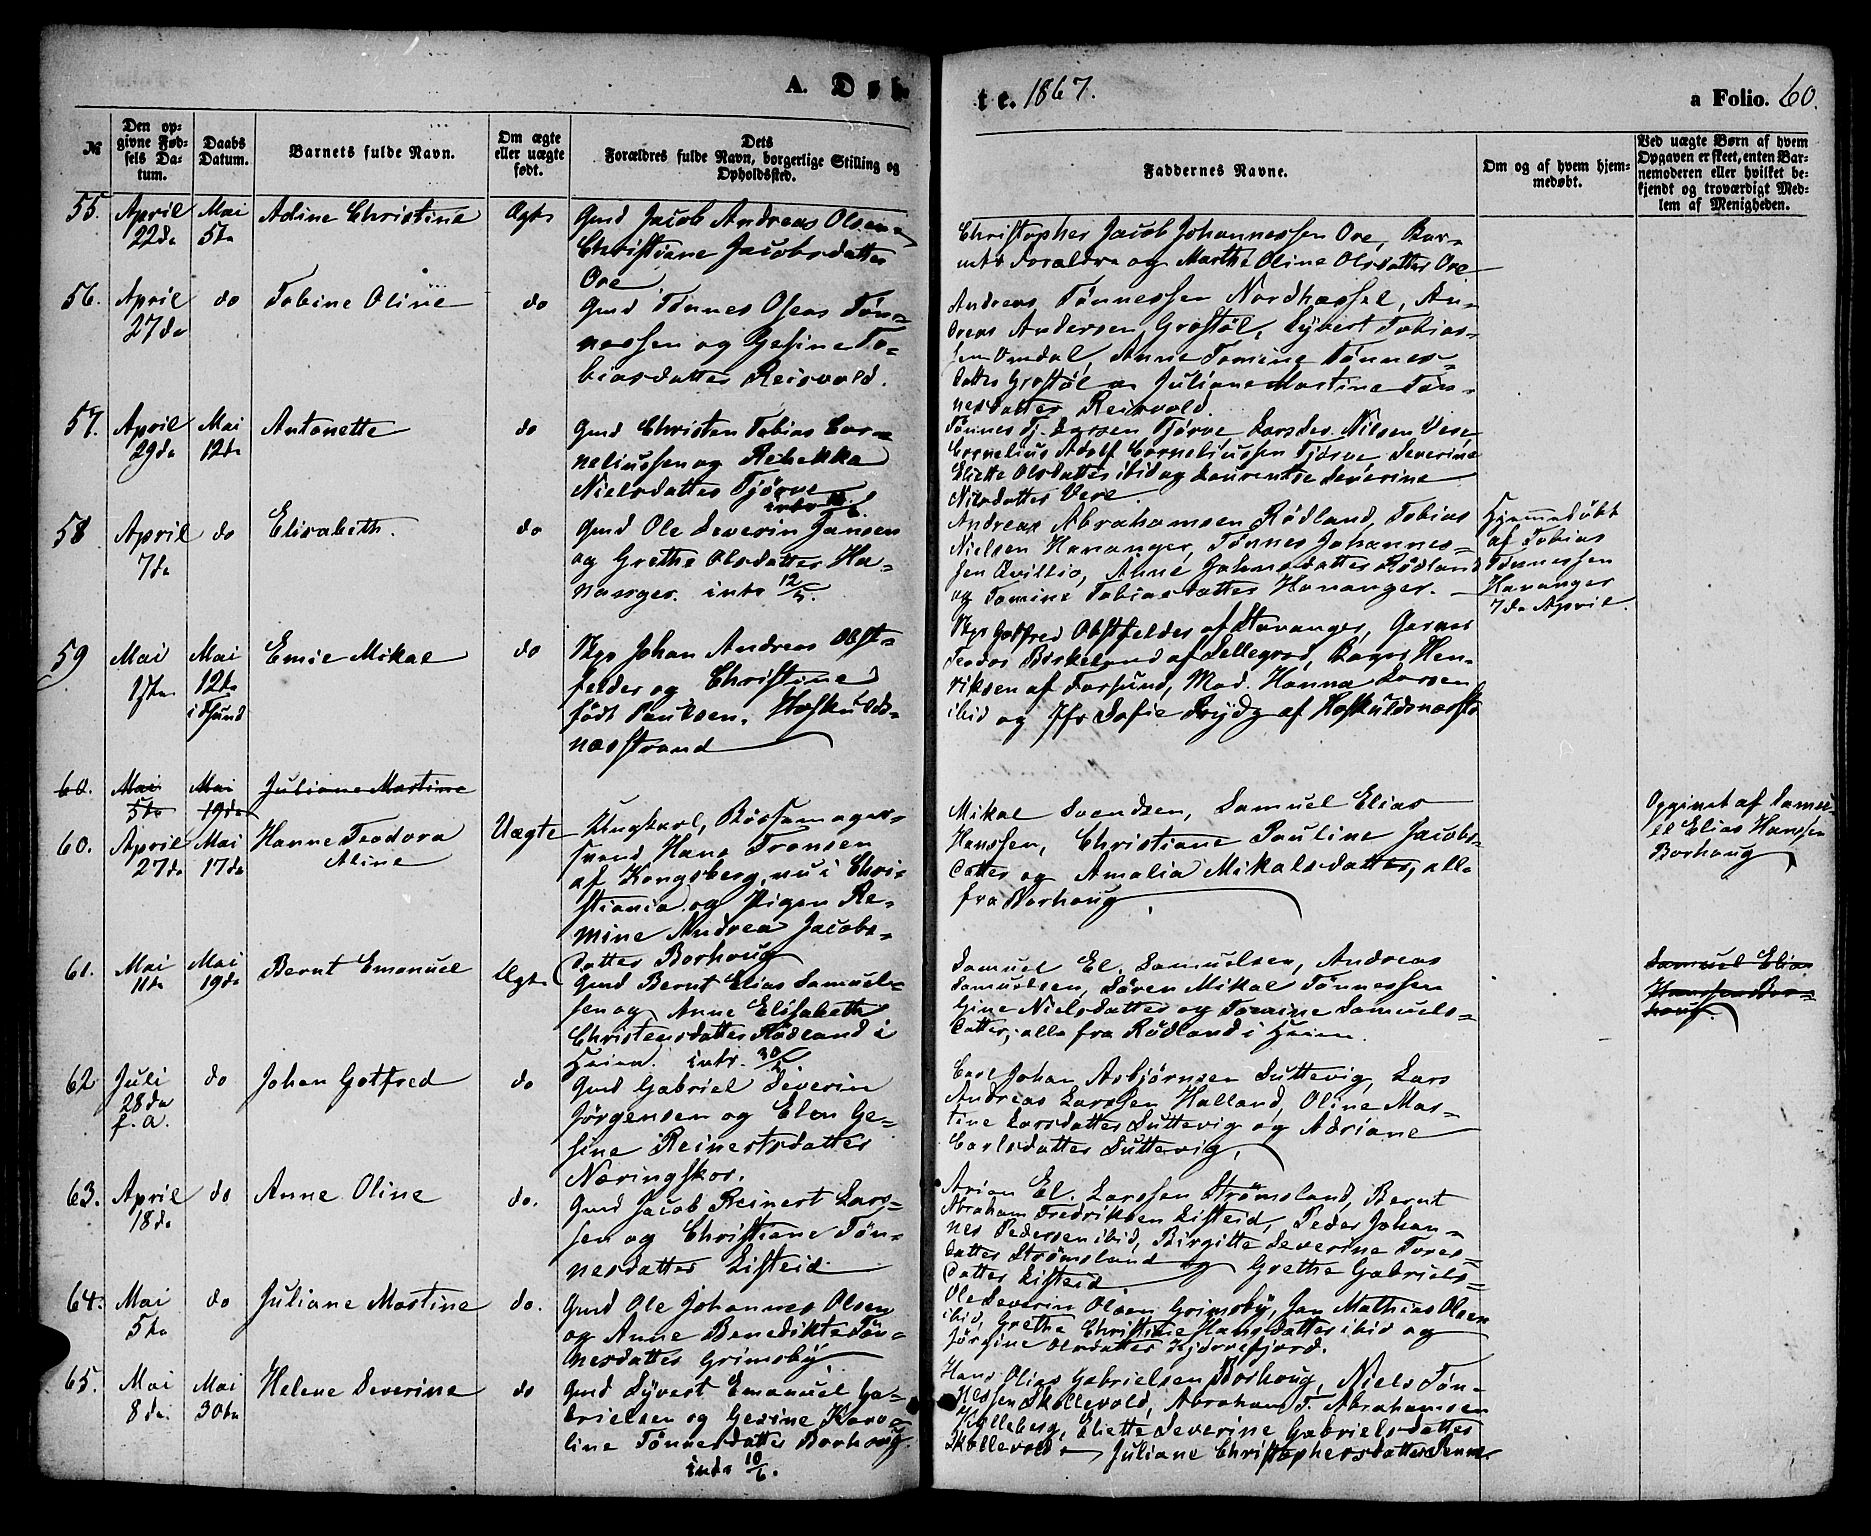 A. Døb-
te. 1867.
a Folio. 60.
№
Den op-
givne Fød-
sels Da-
tum.
Daabs
Datum.
Barnets fulde Navn.
Om ægte
eller uægte
født.
Dets
Forældres fulde Navn, borgerlige Stilling og
Opholdssted.
Faddernes Navne.
Om og af hvem hjem-
medøbt.
Ved uægte Børn af hvem
Opgaven er skeet, enten Bar-
nemoderen eller hvilket be-
kjendt og troværdigt Med-
lem af Menigheden.
55.
April
22de
Mai
5te
Adine Christine
Ægte
Gmd Jacob Andreas Olsen og
Christiane Jacobsdatter
Ore
Christopher Jacob Johannessen Ore, Bar-
nets Forældre og Marthe Oline Olsdatter Ore
56.
April
27de
do
Tobine Oline
do
Gmd Tönnes Oleas Tön-
nessen og Gesine To-
biasdatter Reisvold.
Andreas Tönnessen Nordhassel, An-
dreas Andersen Grostöl, Syvert Tobias-
sen Omdal, Anne Tomine Tönnes-
datter Grostöl og Juliane Martine Tön-
nesdatter Reisvold.
57.
April
29de
Mai
12te
Antonette
do
Gmd Christen Tobias Cor-
neliussen og Rebekka
Nielsdatter Tjörve
Tönnes Tj. Larsen Tjörve Nielsen Vere,
Cornelius Adolf Corneliussen Tjörve Severine
Eliette Olsdatter ibid og Laurentse Severine
Nielsdatter Vere.
58
April
7de
do
Elisabeth.
do
Gmd Ole Severin Jansen
og Grethe Olsdatter Ha-
nanger. intr 12/5.
Andreas Abrahamsen Rödland, Tobias
Nielsen Hananger, Tönnes Johannes-
sen Qvillio, Anne Johnsdatter Rödland
og Tomine Tobiasdatter Hananger.
Hjemmedöbt
af Tobias
Tönnessen
Hananger
7de April.
59
Mai
1ste
Mai
12te
i Fsund
Emie Mikal
do
Skp Johan Andreas Obst-
felder og Christine
födt Paulsen, Höskulds-
næsstrand
Skp Gotfred Obstfelder af Stavanger, Garver
Teodor Birkeland af Lillegrød, Bager Hen-
riksen af Farsund, Mad. Hanna Larsen
ibid og Jfr Sofie Frydz af Höskuldsnæsst
60.
Mai
5te
Mai
19de
Juliane Martine
60.
April
27de
Mai
17de
Hanne Teodora
Aline
Uægte
Ungkarl, Bössemager-
svend Hans Fransen
af Kongsberg, nu i Chri-
stiania og Pigen Re-
mine Andrea Jacobs-
datter Borhoug
Mikal Svendsen, Samuel Elias
Hanssen, Christiane Pauline Jacobs-
datter og Amalia Mikalsdatter, alle
fra Borhoug
Opgivet af Samu-
el Elias Hanssen
Borhoug
61.
Mai
11de
Mai
19de
Bernt Emanuel
Ægte
Gmd Bernt Elias Samuel-
sen og Anne Elisabeth
Christensdatter Rödland i
Heien. intr. 30/6.
Samuel El. Samuelsen, Andreas
Samuelsen, Sören Mikal Tönnessen
Gine Nielsdatter og Tomine Samuels-
datter, alle fra Rödland i Heien.
Samuel Elias
Hanssen Bor-
houg.
62
Juli
28de
f. a.
do
Johan Gotfred
do
Gmd Gabriel Severin
Jörgensen og Elen Ge-
sine Reinertsdatter
Næringskor.
Carl Johan Asbjörnsen Suttevig, Lars
Andreas Larssen Halland, Oline Mar-
tine Larsdatter Suttevig og Adriane
Carlsdatter Suttevig,
63.
April
18de
do
Anne Oline
do.
Gmd Jacob Reinert Lars-
sen og Christiane Tön-
nesdatter Listeid
Arian El. Larssen Strömsland, Bernt
Abraham Fredriksen Listeid, Peder Johan-
nes Pedersen ibid, Birgitte Severine Tores-
datter Strömsland og Grethe Gabriels-
datter Listeid
64.
Mai
5te
do
Juliane Martine
do.
Gmd Ole Johannes Olsen
og Anne Benedikte Tön-
nesdatter Grimsby.
Ole Severin Olsen Grimsby, Jan Mathias Olsen
ibid, Grethe Christine Hansdatter ibid og
Jörgine Olsdatter Kjörrefjord.
65.
Mai
8de
Mai
30te
Helene Severine
do
Gmd Syvert Emanuel Ga-
brielsen og Gesine Karo-
line Tönnesdatter Borhoug.
intr 10/6.
Hans Olias Gabrielsen Borhoug, Niels Tön-
nessen Skollevold, Abraham T. Abrahamsen
Hylleberg, Eliette Severine Gabrielsdatter
Skollevold og Juliane Christophersdatter